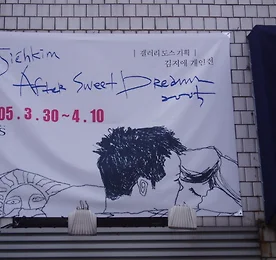 Jiehkim
| 갤러리도스기획 |
김지애 개인전
After Sweet Dream
2005
05. 3. 30 ~ 4. 10